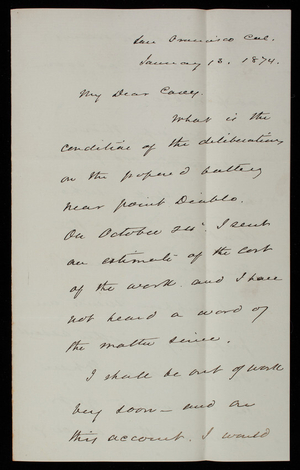 San Francisco Cal.
January 13. 1874.
My Dear Casey.
What is the
condition of the deliberations
on the proposed battery
near point Diablo.
On October 24th I sent
an estimate of the cost
of the work and I have
not heard a word of
the matter since.
I shall be out of work
very soon — and on
this account. I would